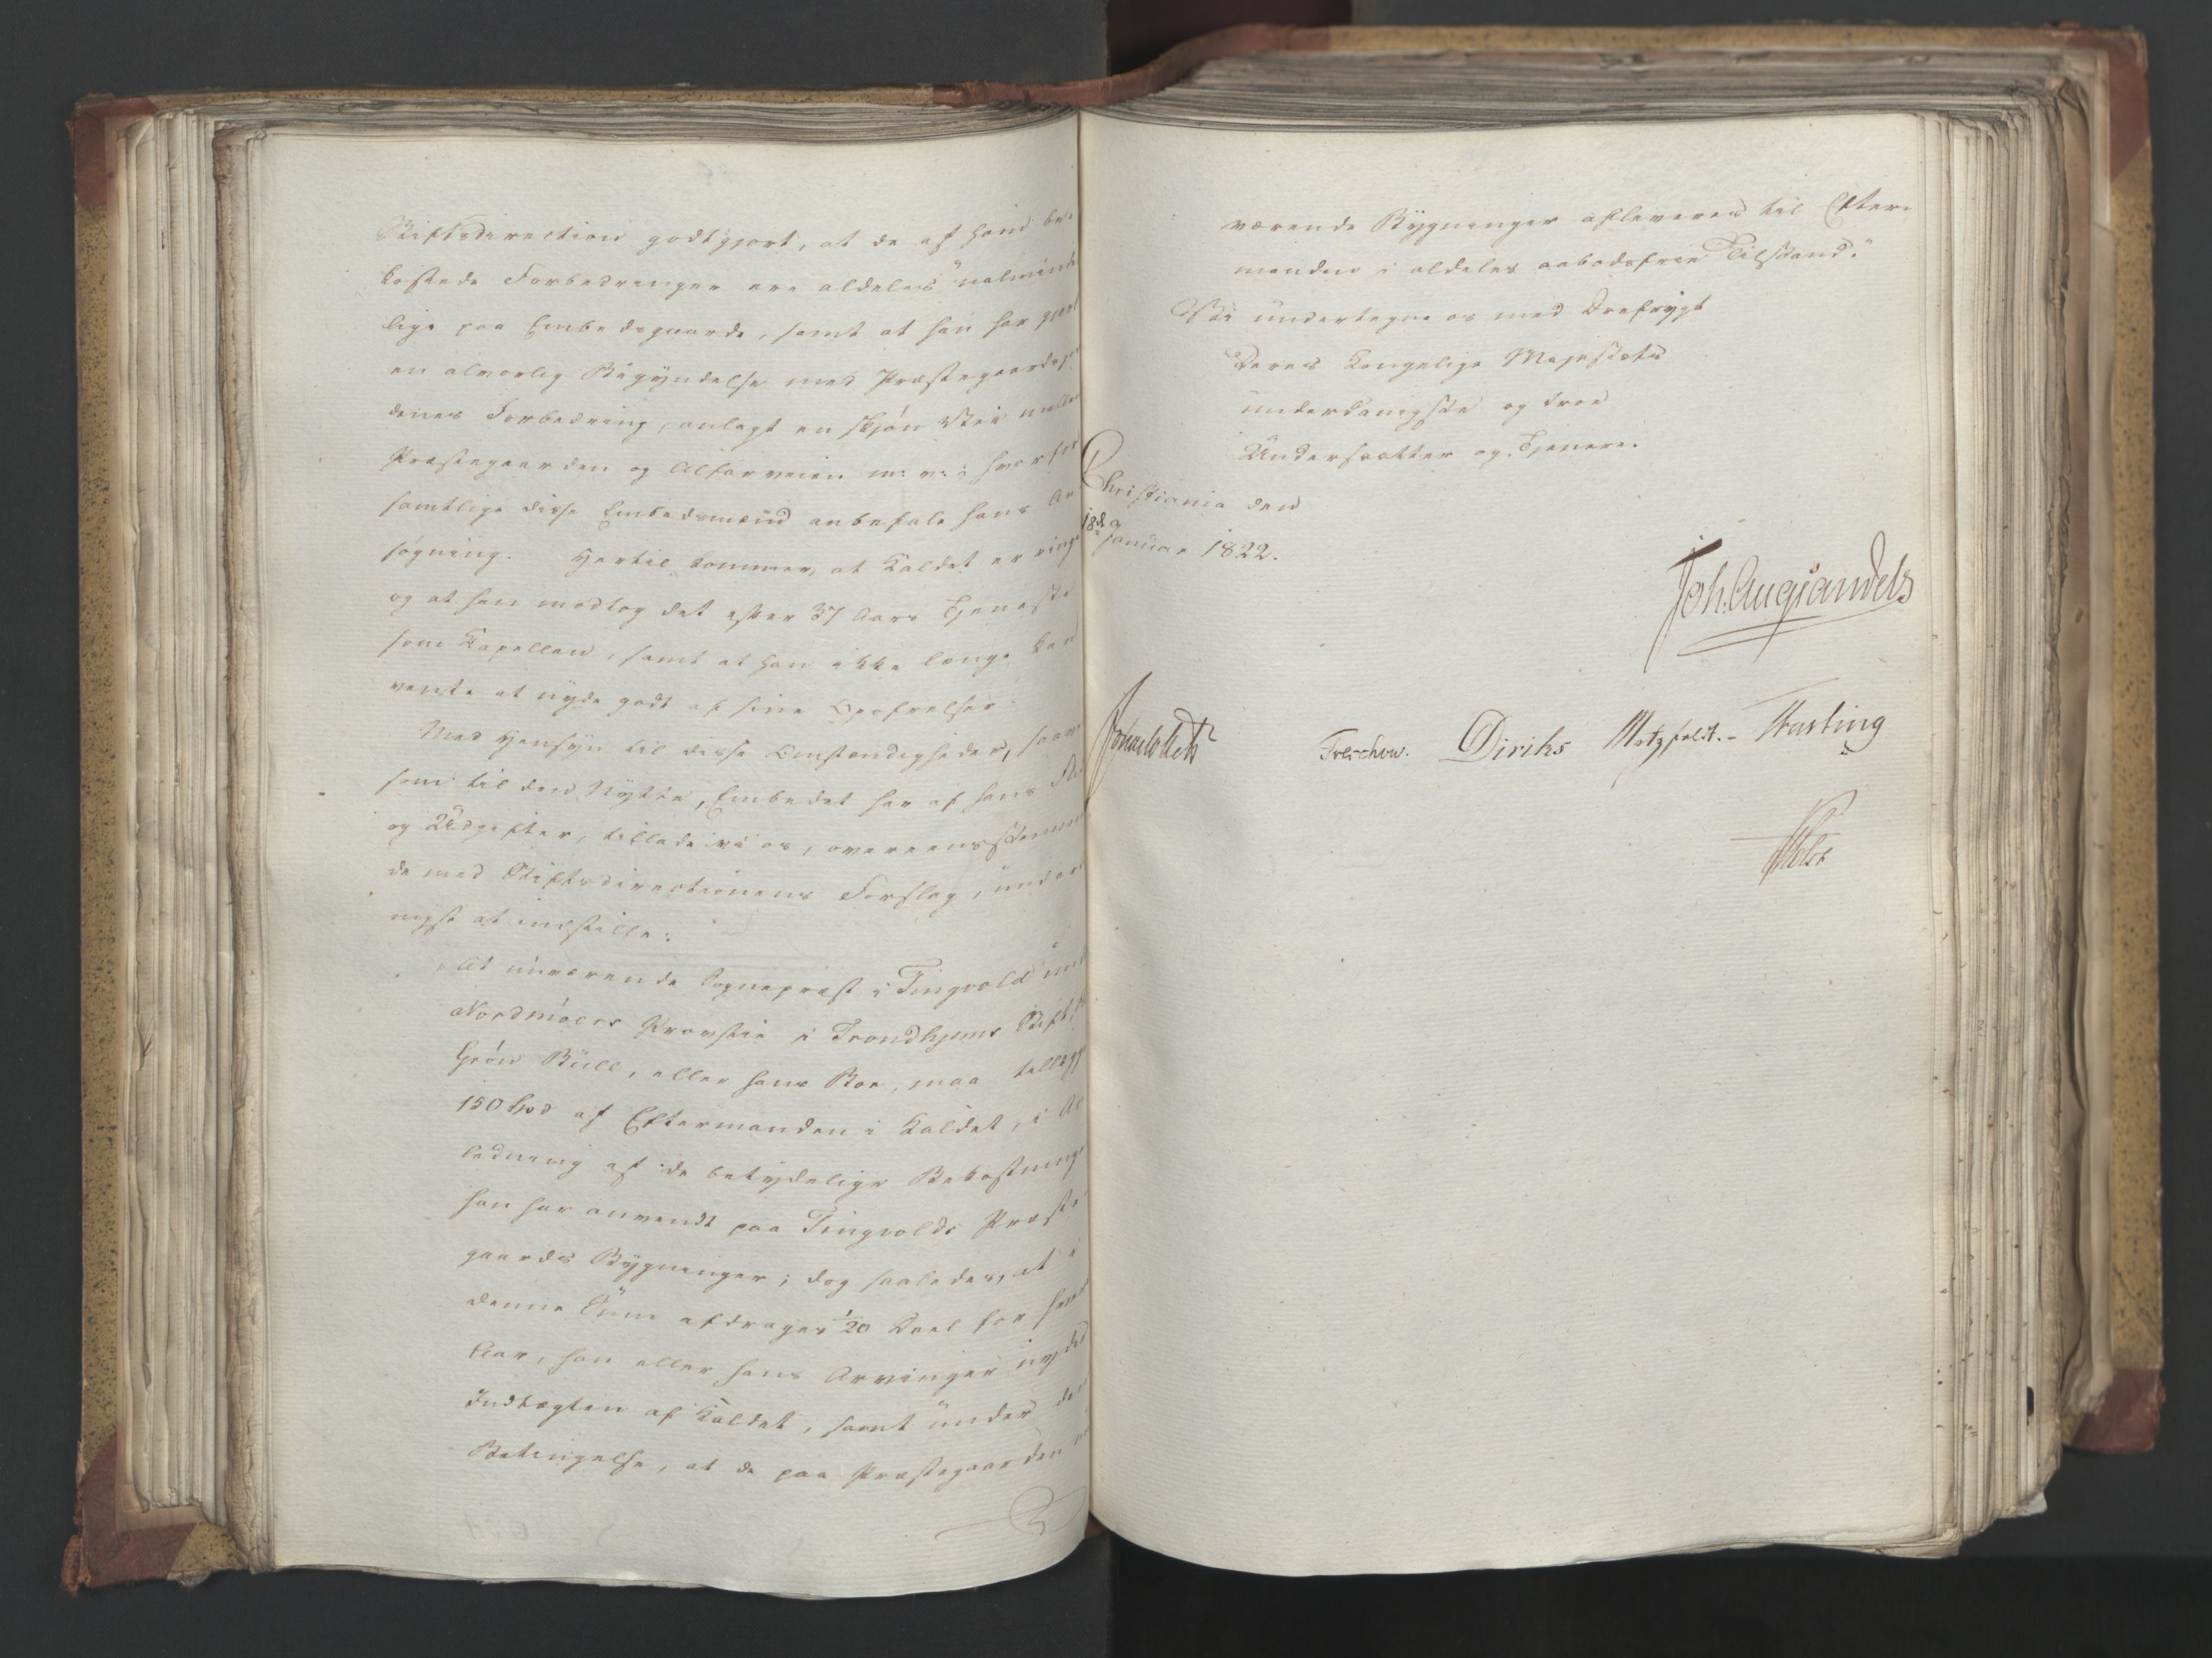 Stiftsdirection godtgjort, at de af ham be-
kostede Forbedringer ere aldeles ualminde
lige paa Embedsgaarde, samt at han har gjort
en alvorlig Begyndelse med Præstegaardsjor
denes Forbedring, anlagt en skjøn Vei mellem
Præstegaarden og Alfarveien m: v:; hvorfor
samtlige disse Embedsmænd anbefale hans An
søgning. Hertil kommer, at Kaldet er ringe
og at han modtog det efter 37 Aars Tjeneste
som Kapellan, samt at han ikke længe kan
vente at nyde godt af sine Opofrelser.
Med Hensyn til disse Omstændigheder, saavel
som til den Nytte, Embedet har af hans
og Udgifter, tillade vi os, overeensstemmen
de med Stiftsdirectionens Forslag, underda
nigst at indstille:
"At nuværende Sognepræst i Tingvold under
Nordmøers Provstie i Trondhjems Stift,
Grøn Bull, eller hans Boe, maa tillægges
150 Spd af Eftermanden i Kaldet, i An
ledning af de betydelige Bekostninger
han har anvendt paa Tingvolds Præste
gaards Bygninger; dog saaledes, at i
denne Sum afdrages 1/20 Deel for hvert
Aar, han eller hans Arvinger nyde
Indtægten af Kaldet, samt under den
Betingelse, at de paa Præstegaarden
værende Bygninger afleveres til Efter-
manden i aldeles aabodsfrie Tilstand."
Vi undertegne os med Ærefrygt
Deres Kongelige Majestæts
underdanigste og troe
Undersaatter og Tjenere.
Christiania den
18de Januar 1822.
Joh. Aug Sandels
Treschow. Diriks Motzfeldt. Fasting
Holst